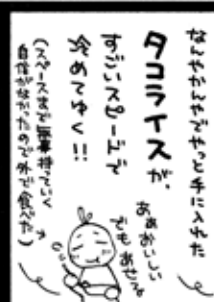 なんやかんやでやっと手に入れた
タコライスが、
すごいスピードで
冷めてゆく!!
(スペースまで無事持っていく
自信がなかったので外で食べた)
ああおいしい
でもあせる